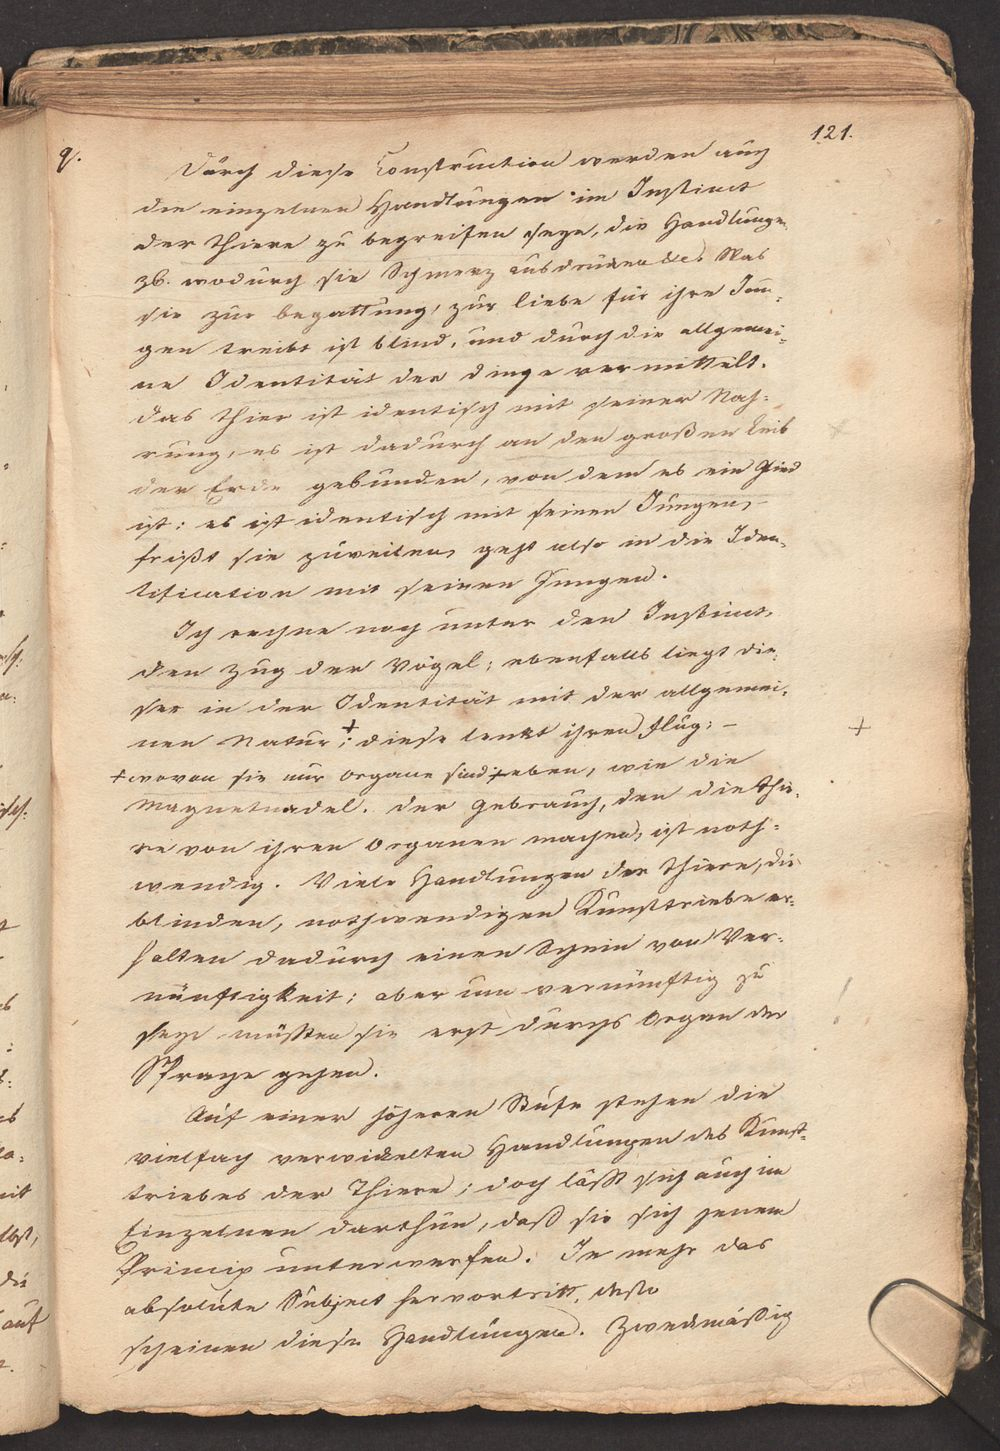 121.
q.
Durch diese Construction werden auch
die einzelnen Handlungen im Instinct
der Thiere zu begreifen seyn, die Handlungen
zb. wodurch sie Schmerz ausdrüken etc. Was
sie zur begattung, zur liebe für ihre Jun-
gen treibt ist blind, und durch die allgemei-
ne Identität der dinge vermittelt.
das thier ist identisch mit seiner Nah-
rung, es ist dadurch an den großen Leib
der Erde gebunden, von dem es ein Glied
ist; es ist identisch mit seinen Jungen,
frißt sie zuweilen, geht also in die Iden-
tification mit seinen Jungen.
Ich rechne noch unter den Instinct,
den Zug der Vögel; ebenfalls liegt die-
ser in der Identität mit der allgemei-
nen Natur +; diese lenkt ihren flug; – +
+ wovon sie nur Organe sind + eben, wie die
Magnetnadel. der gebrauch, den die thie-
re von ihren Organen machen, ist noth-
wendig. Viele Handlungen der Thiere, die
blinden, nothwendigen Kunsttriebe er-
halten dadurch einen Schein von Ver-
nünftigkeit; aber um vernünftig zu
seyn müßten sie erst durchs Organ der
Sprache gehen.
Auf einer höheren Stufe stehen die
vielfach verwikelten Handlungen des Kunst-
triebes der Thiere; doch läßt sich auch im
Einzelnen darthun, daß sie sich jenem
Princip unterwerfen. Je mehr das
absolute Subject hervortritt, desto
scheinen diese Handlungen. Zwekmäßig